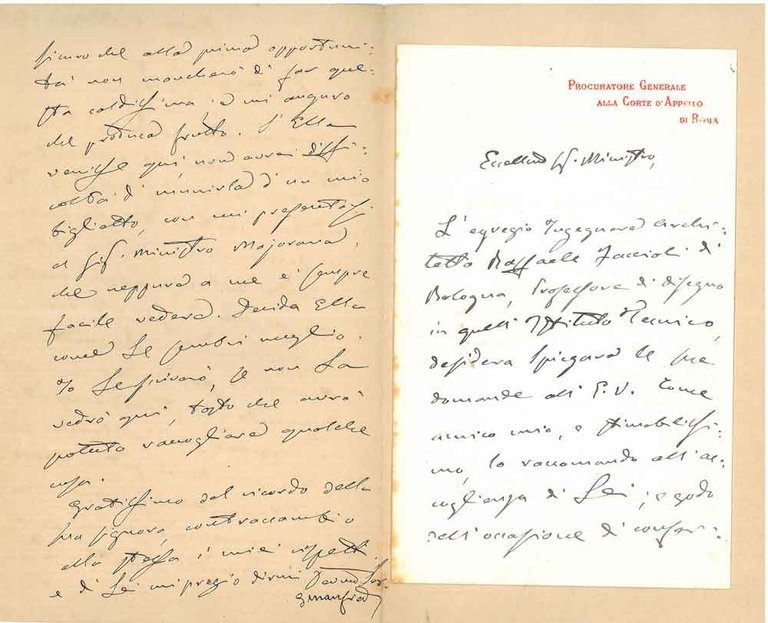 sicuro che alla prima opportuni-
tà non mancherà di far que-
sta caldissima: e mi auguro
che produca frutto. S'Ella
venisse qui, non avrei diffi-
coltà di munirla d'un mio
biglietto, con cui presentarsi
al Sig. Ministro Majorana,
che neppure a me è sempre
facile vedere. Decida Ella
come Le sembri meglio.
Io Le scriverò, se non La
vedrò qui, tosto che avrò
potuto raccogliere qualche
cosa.
Gratissimo del ricordo della
sua signora, contraccambio
alla stessa i miei rispetti
e di Lei mi pregio dirmi
GManfredi
PROCURATORE GENERALE
ALLA CORTE D'APPELLO
DI ROMA
Eccellmo Sig. Ministro,
L'egregio Ingegnere Archi-
tetto Raffaele Faccioli di
Bologna, Professore di disegno
in quell'Istituto Tecnico,
desidera spiegare le sue
domande all'E.V. Come
amico mio, e stimabilissi-
mo, lo raccomando all'ac-
coglienza di Lei; e godo
dell'occasione di confer-